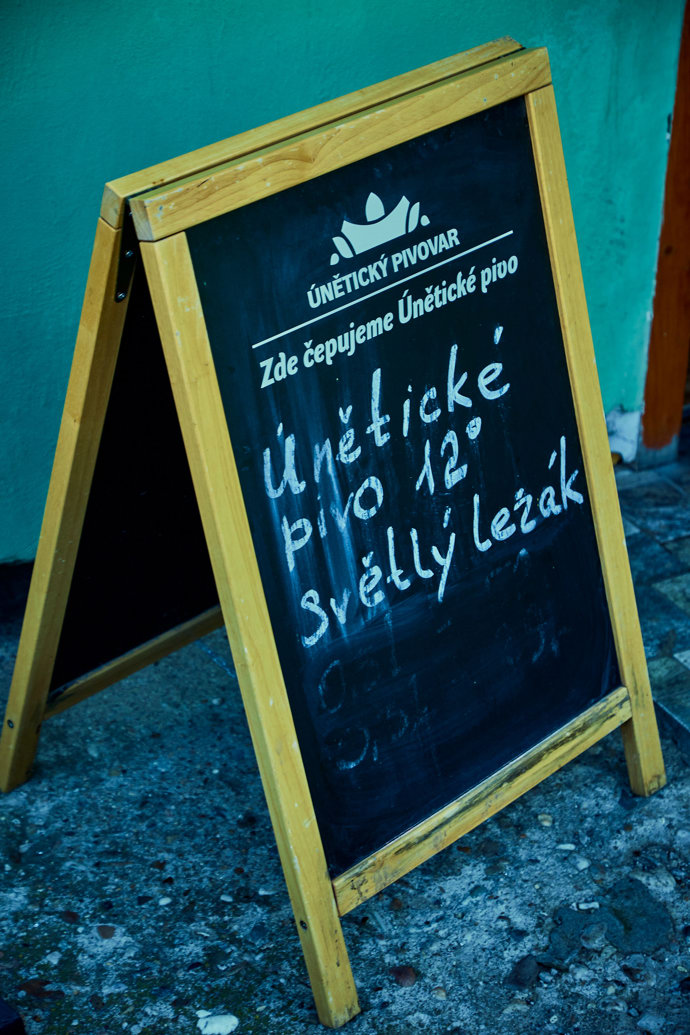 ÚNĚTICKÝ PIVOVAR
Zde čepujeme Únětické pivo
Únětické
pivo 12°
světlý ležák